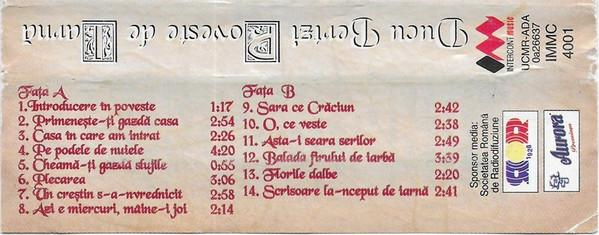 Ducu Bertzi Poveste de Iarnă
Fața A
1.Introducere în poveste 1:17
2. Primenește-ți gazdă casa 2:54
3. Casa în care am intrat 2:26
4. Pe podele de nuiele 4:20
5. Cheamă-ți gazdă slujile 0:55
6. Plecarea 3:06
7. Un creștin s-a-nvrednicit 2:58
8. Azi e miercuri, mâine-i joi 2:14
Fața B
9. Sara ce Crăciun 2:42
10. O, ce veste 2:38
11. Asta-i seara serilor 2:49
12. Balada firului de iarbă 3:39
13. Florile dalbe 2:20
14. Scrisoare la-nceput de iarnă 2:41
INTERCONT music
UCMR-ADA
0a26637
IMMC
4001
Sponsor media:
Societatea Română
de Radiodifuziune
ROR
1928
Aurora